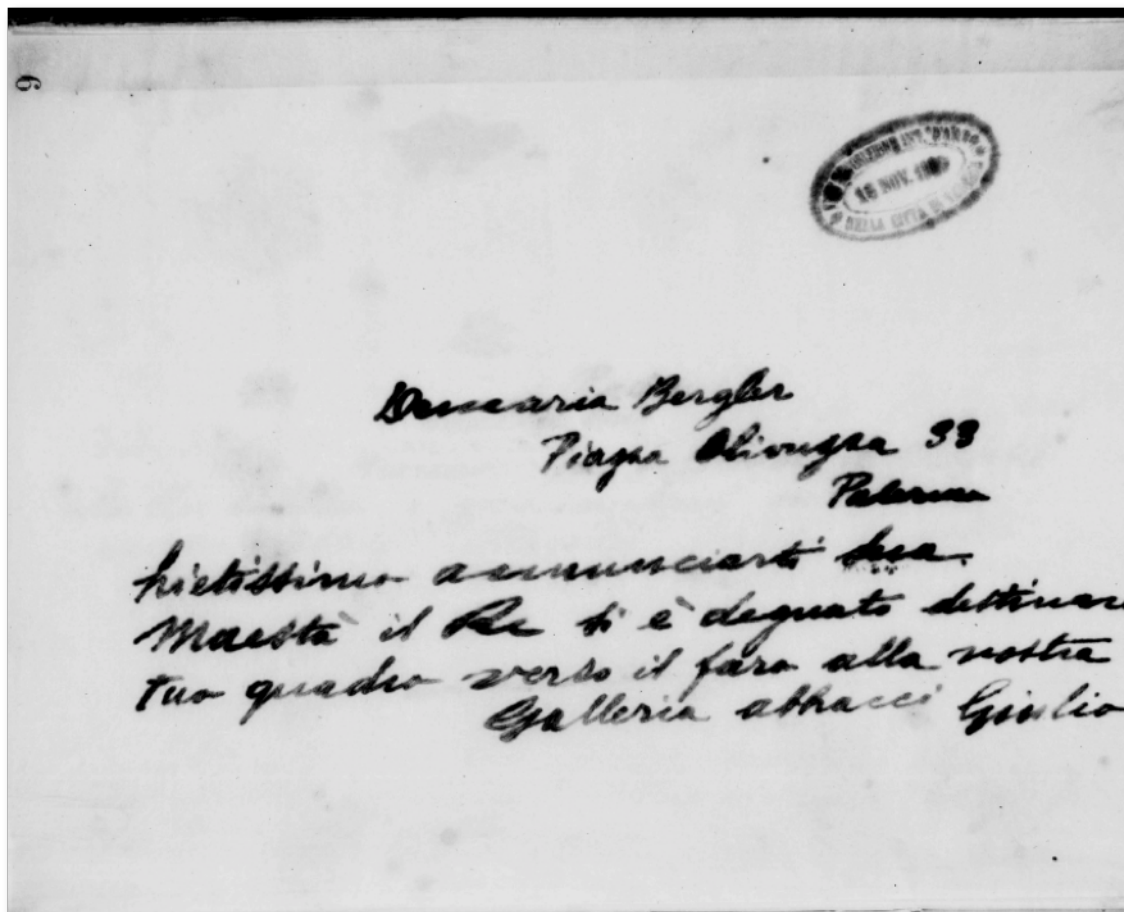 6
ESPOSIZIONE INT. D'ARTE
16 NOV.
DELLA CITTÀ DI VENEZIA
Bergler
Piazza Olivuzza 38
Palermo
Lietissimo annunciarti Sua
Maestà il Re si è degnato destinare
tuo quadro verso il faro alla nostra
Galleria abbracci Giulio